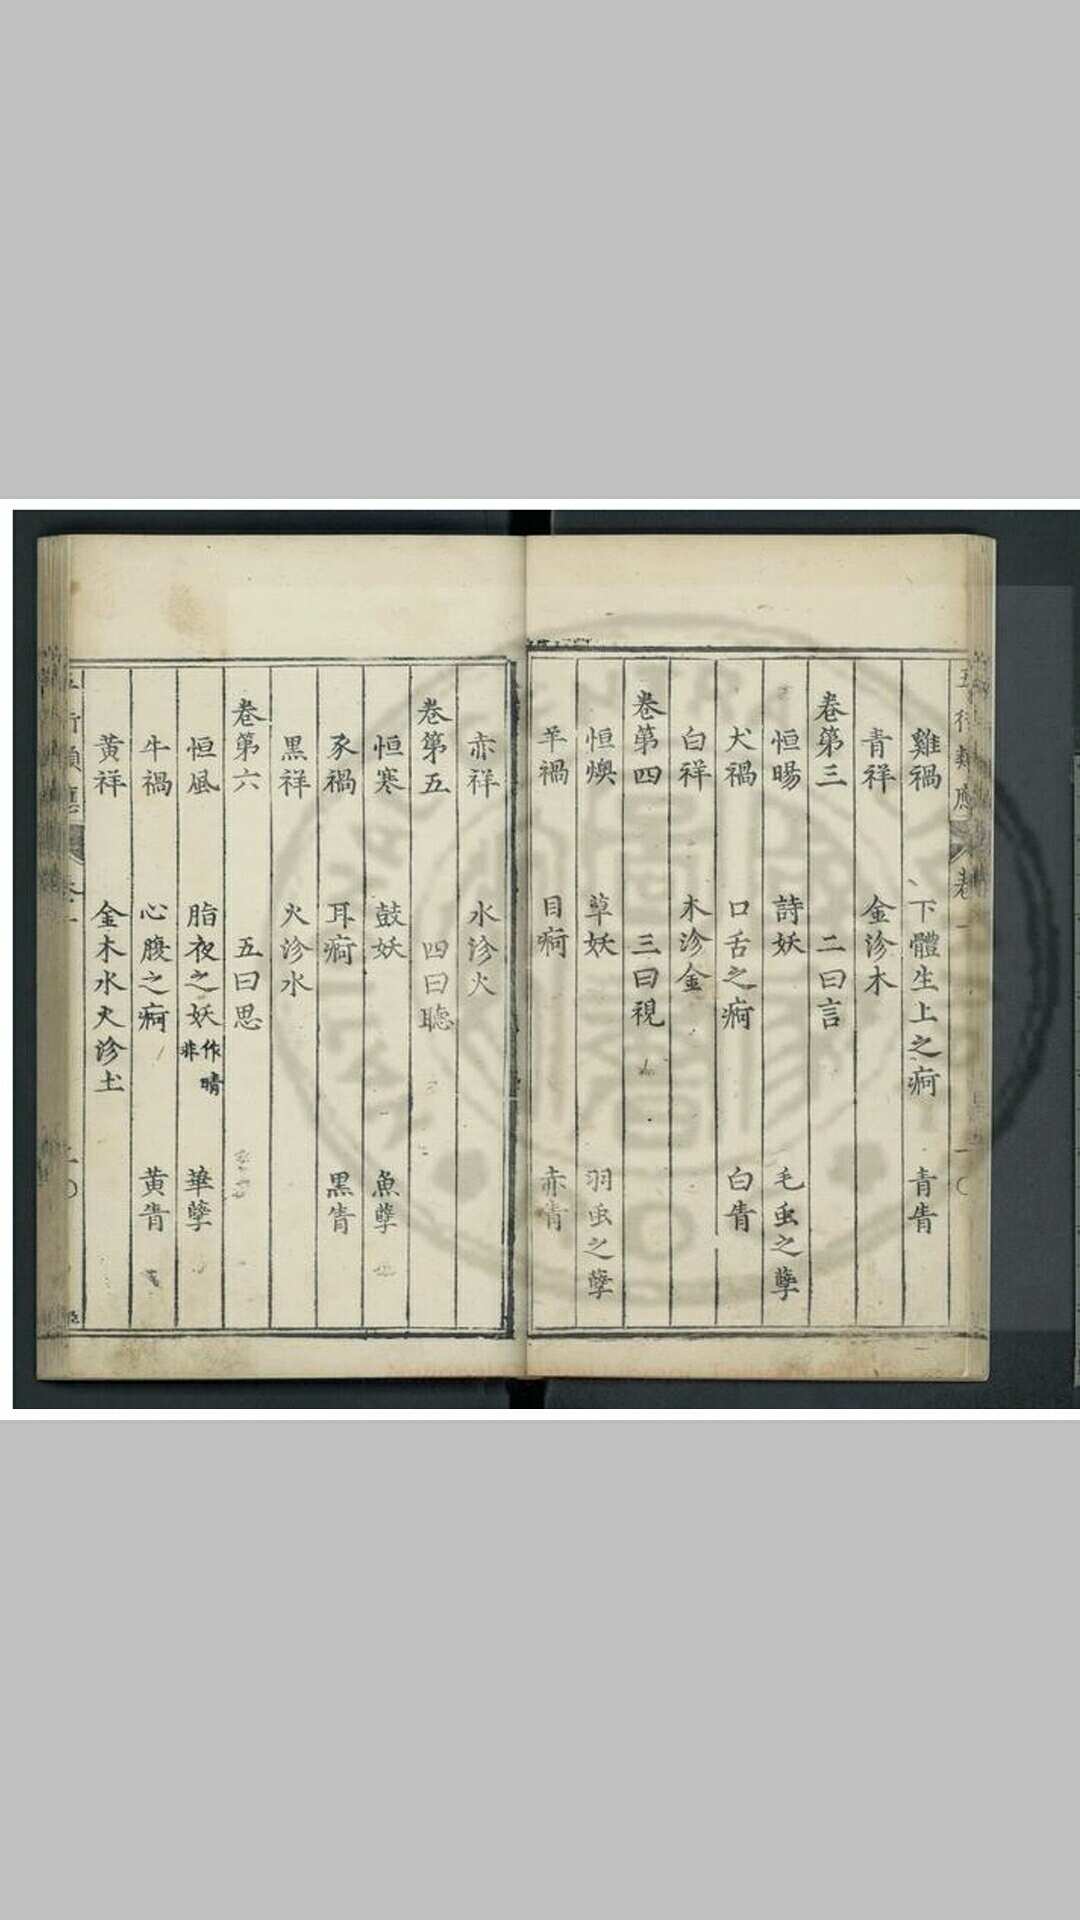 雞禍 下體生上之痾 青眚
青祥 金沴木
卷第三 二曰言
恒暘 詩妖 毛虫之孽
犬禍 口舌之痾 白眚
白祥 木沴金
卷第四 三曰視
恒燠 草妖 羽虫之孽
羊禍 目痾 赤眚
赤祥 水沴火
卷第五 四曰聽
恒寒 鼓妖 魚孽
豕禍 耳痾 黒眚
黒祥 火沴水
卷第六 五曰思
恒風 脂夜之妖 作晴非 華孽
牛禍 心腹之痾 黃眚
黃祥 金木水火沴土
五行類應 卷一